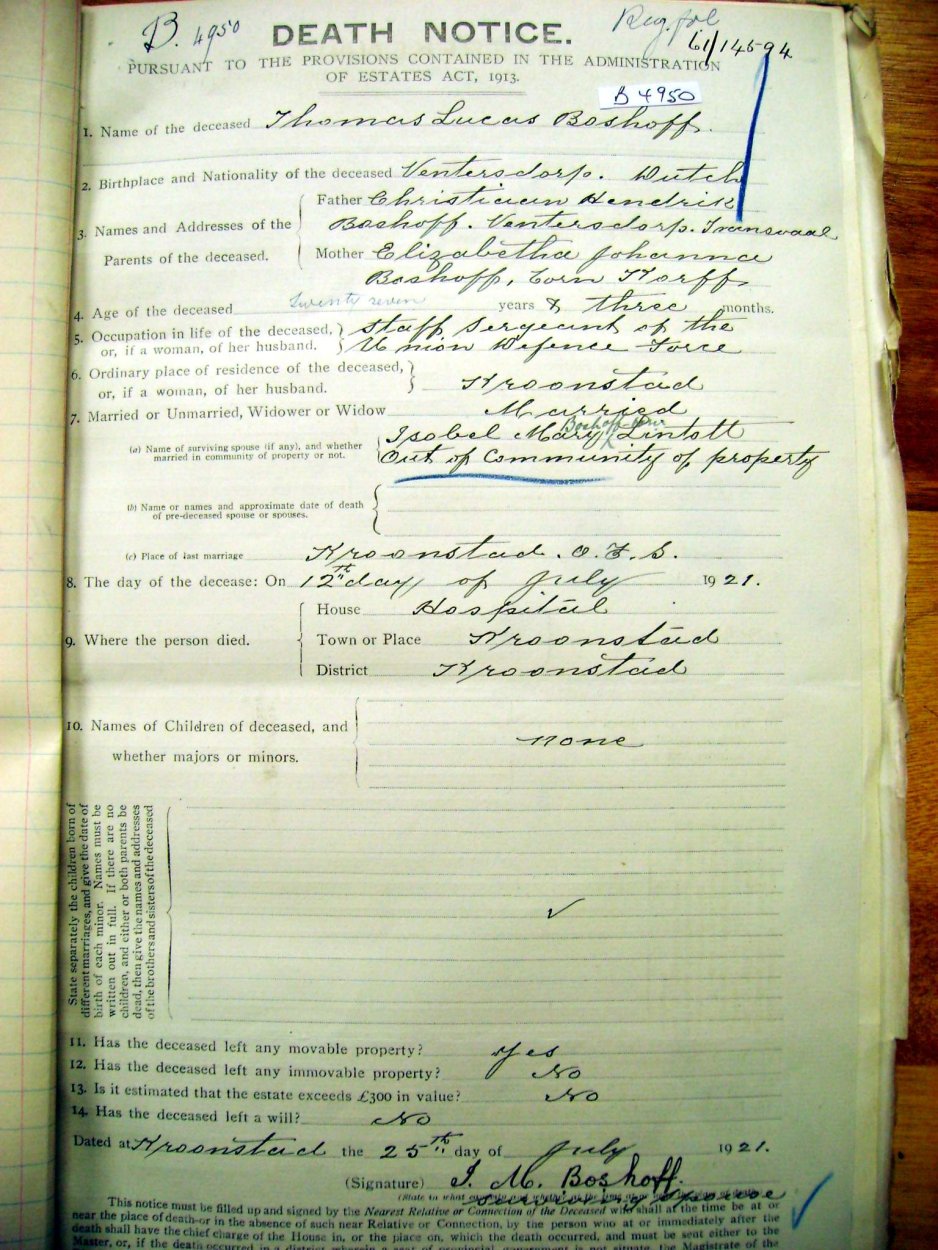 B. 4950
DEATH NOTICE.
Reg. fol
61/14594
PURSUANT TO THE PROVISIONS CONTAINED IN THE ADMINISTRATION
OF ESTATES ACT, 1913.
B 4950
1. Name of the deceased Thomas Lucas Boshoff.
2. Birthplace and Nationality of the deceased Ventersdorp. Dutch
3. Names and Addresses of the Parents of the deceased.
Father Christiaan Hendrik
Boshoff. Ventersdorp. Transvaal
Mother Elizabetha Johanna
Boshoff, born Korff
4. Age of the deceased twenty seven years & three months.
5. Occupation in life of the deceased, Staff Sergeant of the
or, if a woman, of her husband. Union Defence Force
6. Ordinary place of residence of the deceased,
or, if a woman, of her husband. Kroonstad
7. Married or Unmarried, Widower or Widow Married
Boshoff
(a) Name of surviving spouse (if any), and whether Isobel Mary Lintott
married in community of property or not. Out of Community of property
(b) Name or names and approximate date of death
of pre-deceased spouse or spouses.
(c) Place of last marriage Kroonstad. O.F.S.
8. The day of the decease: On 12th day of July 1921.
9. Where the person died.
House Hospital
Town or Place Kroonstad
District Kroonstad
10. Names of Children of deceased, and
whether majors or minors.
none
State separately the children born of
different marriages, and give the date of
birth of each minor. Names must be
written out in full. If there are no
children, and either or both parents be
dead, then give the names and addresses
of the brothers and sisters of the deceased
11. Has the deceased left any movable property? Yes
12. Has the deceased left any immovable property? No
13. Is it estimated that the estate exceeds £300 in value? No
14. Has the deceased left a will? No
Dated at Kroonstad the 25th day of July 1921.
(Signature) I. M. Boshoff.
(State in what
This notice must be filled up and signed by the Nearest Relative or Connection of the Deceased who shall at the time be at or
near the place of death—or in the absence of such near Relative or Connection, by the person who at or immediately after the
death shall have the chief charge of the House in, or the place on, which the death occurred, and must be sent either to the
Master, or, if the death occurred in a district wherein a seat of provincial government is not situate, the Magistrate of the